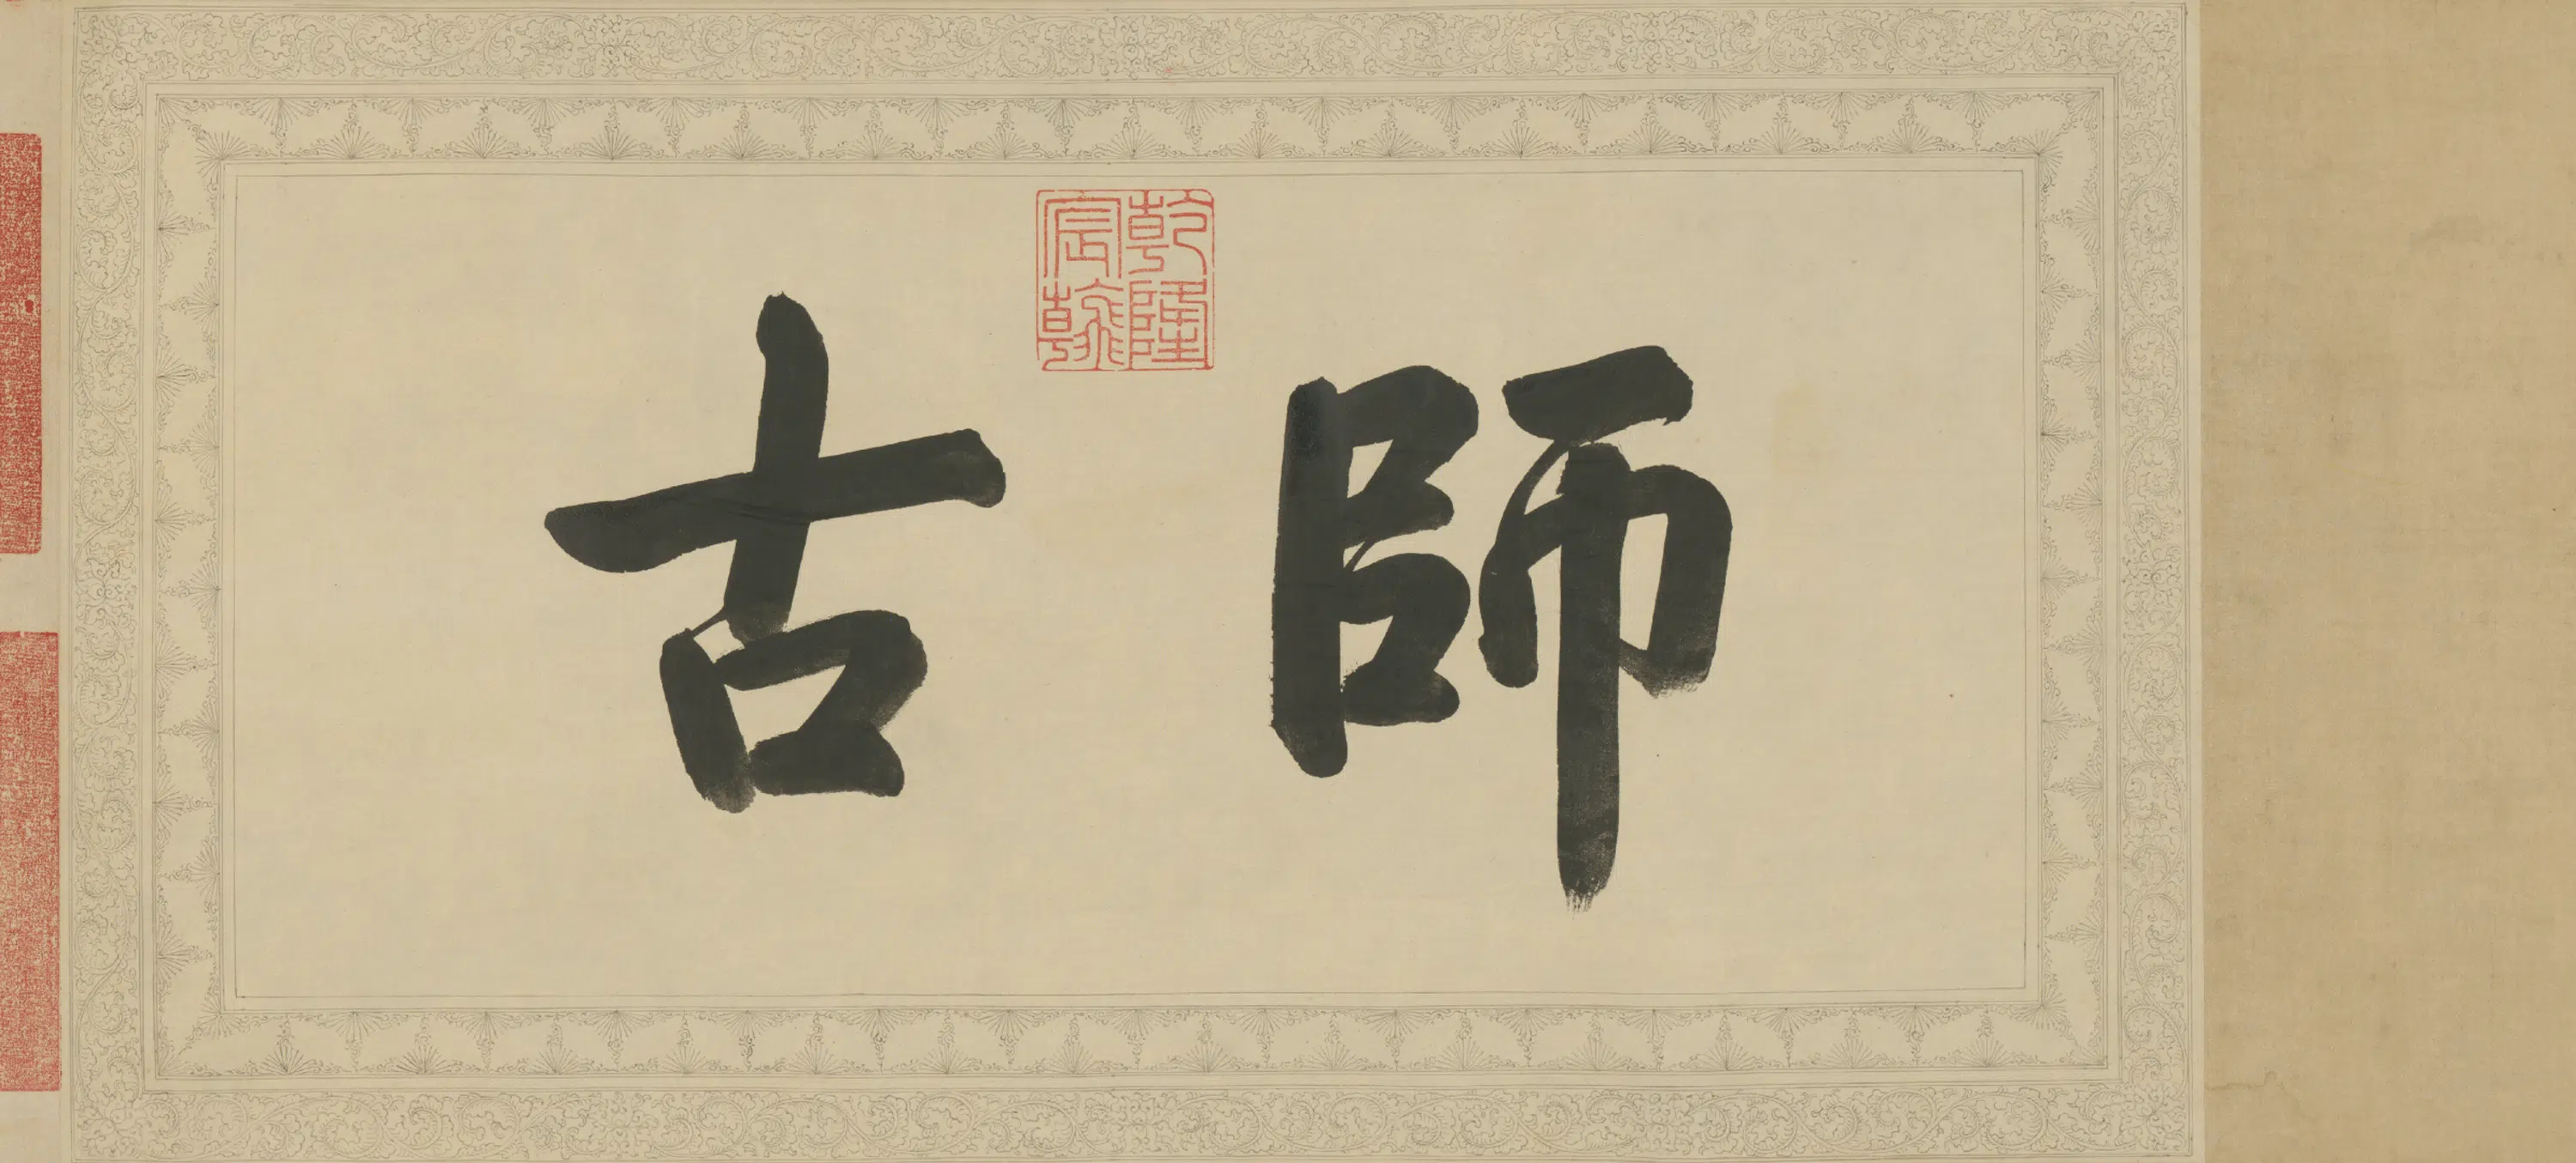 師古
乾隆
宸翰